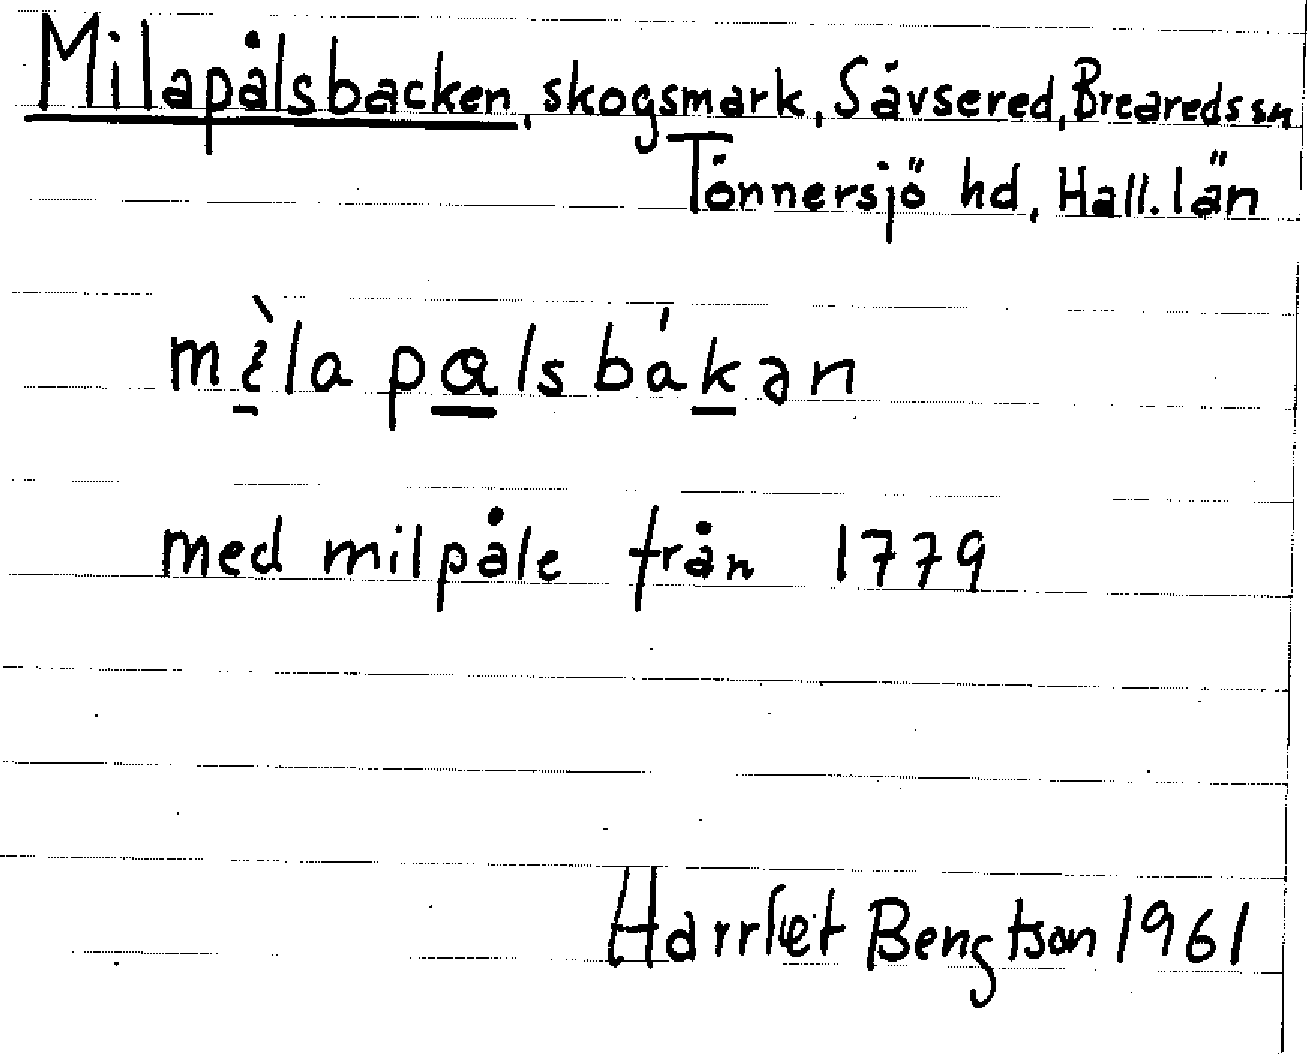 Milapålsbacken, skogsmark, Sävsered, Breareds sn
Tönnersjö hd, Hall. län
mìla pɑlsbákan
med milpåle från 1779
Harriet Bengtson 1961